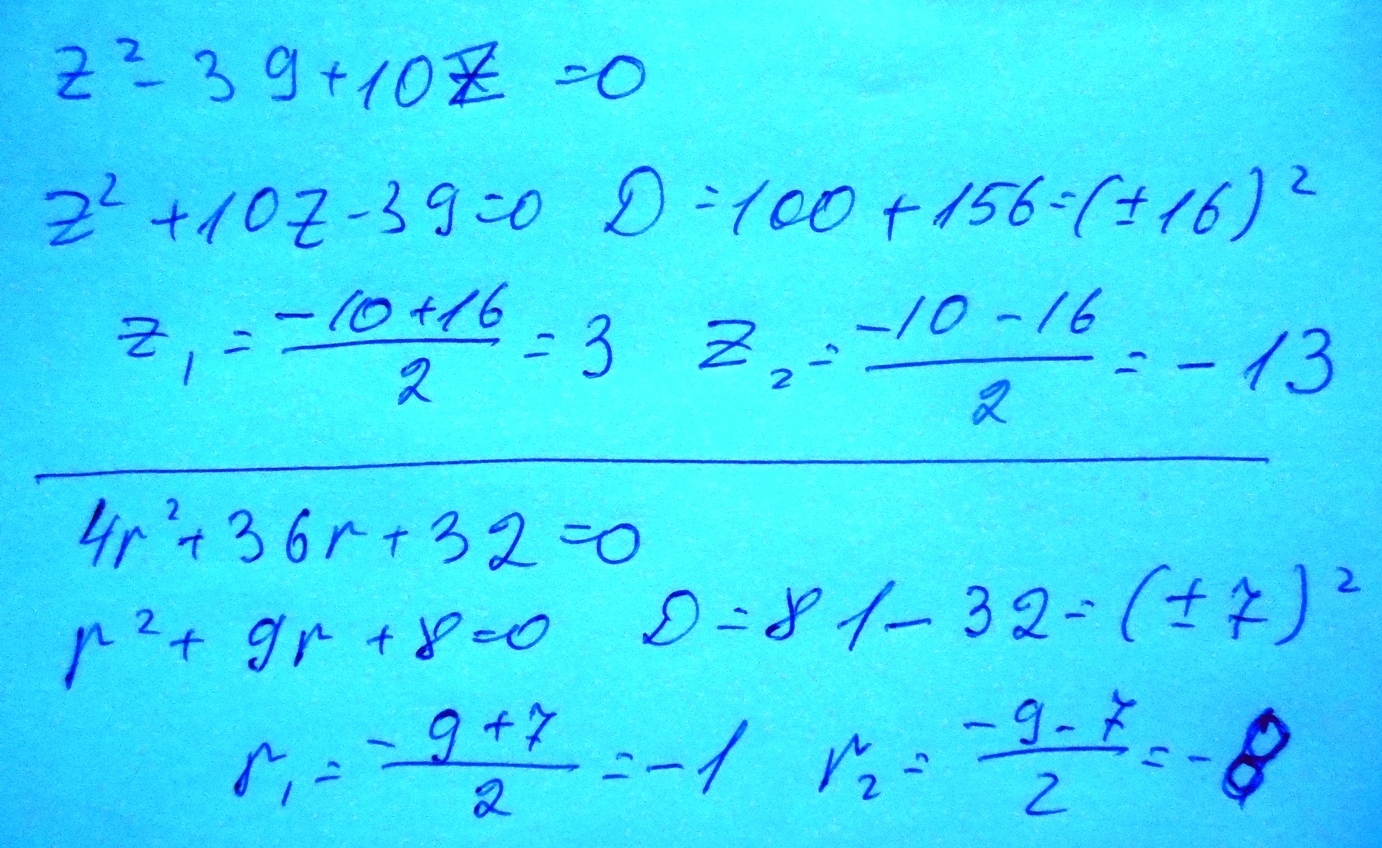 z² - 39 + 10z = 0
z² + 10z - 39 = 0 D = 100 + 156 = (±16)²
z₁ = (-10 + 16)/2 = 3 z₂ = (-10 - 16)/2 = -13
4r² + 36r + 32 = 0
r² + 9r + 8 = 0 D = 81 - 32 = (±7)²
r₁ = (-9 + 7)/2 = -1 r₂ = (-9 - 7)/2 = -8